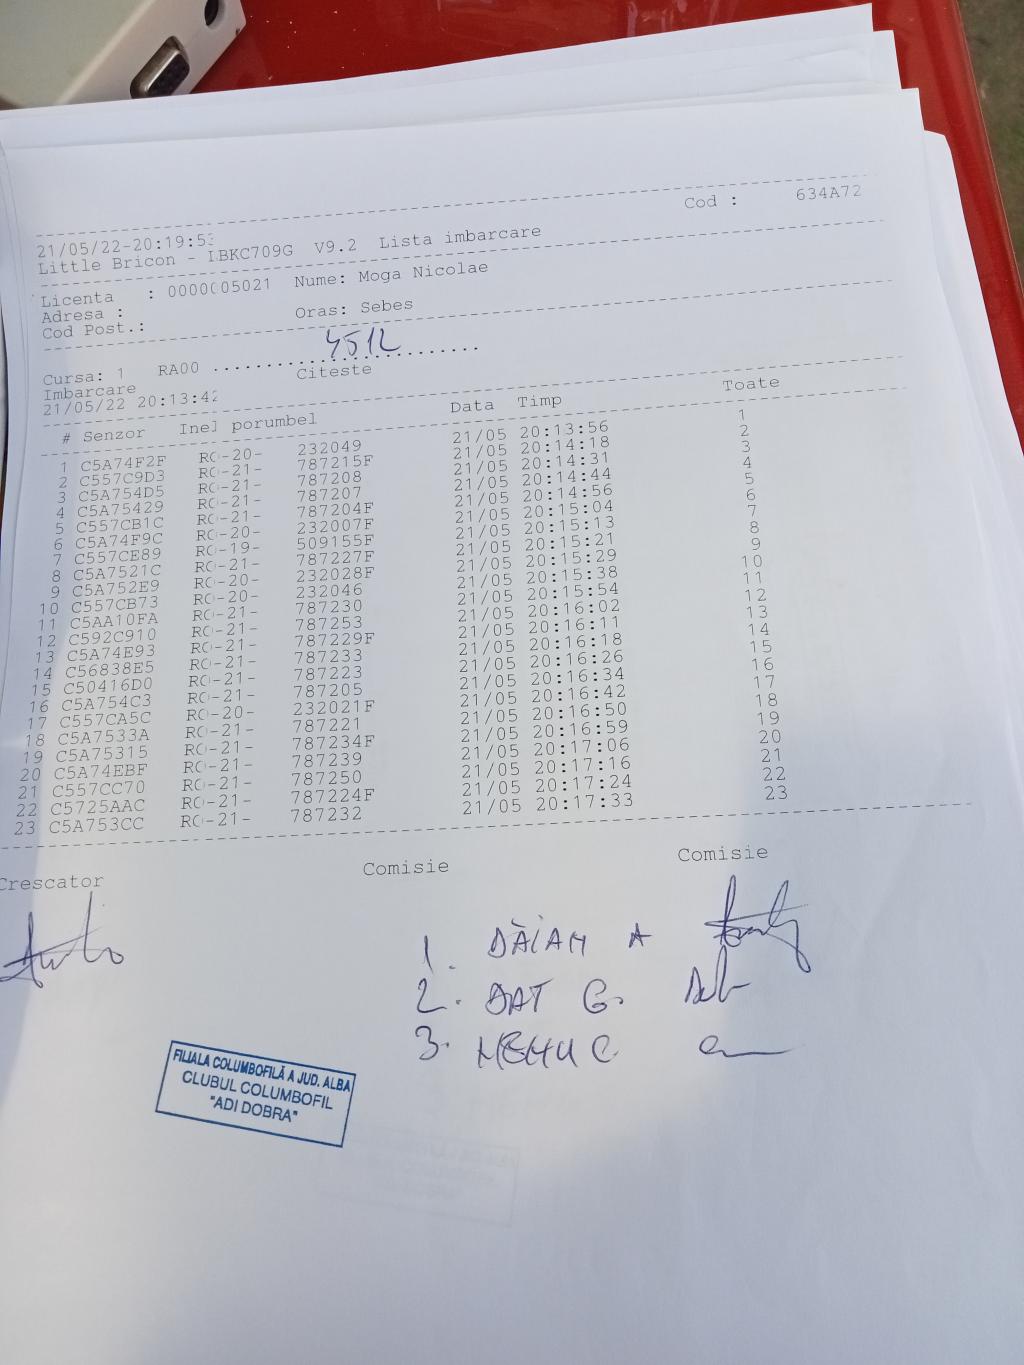 21/05/22-20:19:53 Cod : 634A72
Little Bricon - LBKC709G V9.2 Lista imbarcare
Licenta : 0000005021 Nume: Moga Nicolae
Adresa :
Cod Post.: Oras: Sebes
Cursa: 1 RA00 .......................... 4512
Imbarcare Citeste
21/05/22 20:13:42
# Senzor Inel porumbel Data Timp Toate
1 C5A74F2F RO-20- 232049 21/05 20:13:56 1
2 C557C9D3 RO-21- 787215F 21/05 20:14:18 2
3 C5A754D5 RO-21- 787208 21/05 20:14:31 3
4 C5A75429 RO-21- 787207 21/05 20:14:44 4
5 C557CB1C RO-21- 787204F 21/05 20:14:56 5
6 C5A74F9C RO-20- 232007F 21/05 20:15:04 6
7 C557CE89 RO-19- 509155F 21/05 20:15:13 7
8 C5A7521C RO-21- 787227F 21/05 20:15:21 8
9 C5A752E9 RO-20- 232028F 21/05 20:15:29 9
10 C557CB73 RO-20- 232046 21/05 20:15:38 10
11 C5AA10FA RO-21- 787230 21/05 20:15:54 11
12 C592C910 RO-21- 787253 21/05 20:16:02 12
13 C5A74E93 RO-21- 787229F 21/05 20:16:11 13
14 C56838E5 RO-21- 787233 21/05 20:16:18 14
15 C50416D0 RO-21- 787223 21/05 20:16:26 15
16 C5A754C3 RO-21- 787205 21/05 20:16:34 16
17 C557CA5C RO-20- 232021F 21/05 20:16:42 17
18 C5A7533A RO-21- 787221 21/05 20:16:50 18
19 C5A75315 RO-21- 787234F 21/05 20:16:59 19
20 C5A74EBF RO-21- 787239 21/05 20:17:06 20
21 C557CC70 RO-21- 787250 21/05 20:17:16 21
22 C5725AAC RO-21- 787224F 21/05 20:17:24 22
23 C5A753CC RO-21- 787232 21/05 20:17:33 23
Crescator Comisie Comisie
1. DĂIAN A
2. DAT G.
3.
FILIALA COLUMBOFILĂ A JUD. ALBA
CLUBUL COLUMBOFIL
"ADI DOBRA"